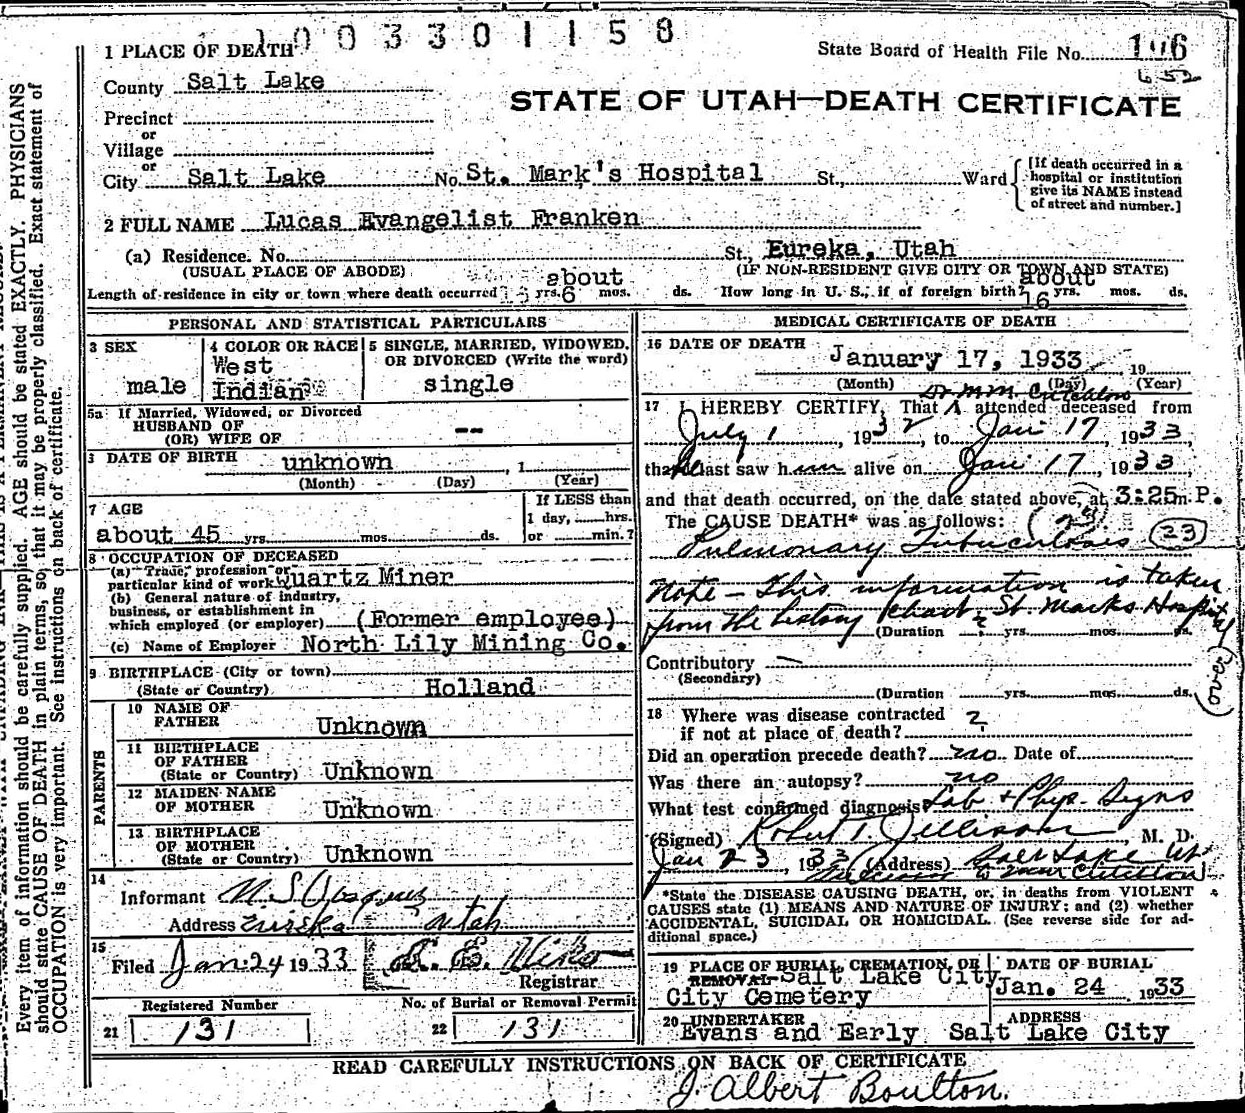 1003301158
1 PLACE OF DEATH
State Board of Health File No. 106
652
County Salt Lake
STATE OF UTAH—DEATH CERTIFICATE
Precinct
or
Village
or
City Salt Lake No. St. Mark's Hospital St., Ward
[If death occurred in a
hospital or institution
give its NAME instead
of street and number.]
2 FULL NAME Lucas Evangelist Franken
(a) Residence. No. St., Eureka, Utah
(USUAL PLACE OF ABODE) (IF NON-RESIDENT GIVE CITY OR TOWN AND STATE)
about about
Length of residence in city or town where death occurred yrs. 6 mos. ds. How long in U. S., if of foreign birth? 16 yrs. mos. ds.
PERSONAL AND STATISTICAL PARTICULARS
3 SEX
male
4 COLOR OR RACE
West
Indian
5 SINGLE, MARRIED, WIDOWED,
OR DIVORCED (Write the word)
single
5a If Married, Widowed, or Divorced
HUSBAND OF
(OR) WIFE OF --
DATE OF BIRTH unknown , 1
(Month) (Day) (Year)
7 AGE
about 45 yrs. mos. ds.
If LESS than
1 day, hrs.
or min.?
8 OCCUPATION OF DECEASED
(a) Trade, profession or
particular kind of work Quartz Miner
(b) General nature of industry,
business, or establishment in
which employed (or employer) (Former employee)
(c) Name of Employer North Lily Mining Co.
9 BIRTHPLACE (City or town)
(State or Country) Holland
PARENTS
10 NAME OF
FATHER Unknown
11 BIRTHPLACE
OF FATHER
(State or Country) Unknown
12 MAIDEN NAME
OF MOTHER Unknown
13 BIRTHPLACE
OF MOTHER
(State or Country) Unknown
14
Informant
Address Eureka Utah
15
Filed Jan. 24 1933
Registrar
Registered Number
21 131
No. of Burial or Removal Permit
22 131
MEDICAL CERTIFICATE OF DEATH
16 DATE OF DEATH
January 17, 1933 19
(Month) (Day) (Year)
Dr. M.M. Critchlow
17 I HEREBY CERTIFY, That attended deceased from
July 1, 1932, to Jan 17, 1933,
that he last saw him alive on Jan 17, 1933,
and that death occurred, on the date stated above, at 3:25 m. P.
The CAUSE DEATH* was as follows: (23)
Pulmonary Tuberculosis (23)
Note - This information is taken
from the history chart, St. Marks Hospital
(Duration ? yrs. mos. ds.
(over)
Contributory —
(Secondary)
(Duration yrs. mos. ds.
18 Where was disease contracted
if not at place of death? ?
Did an operation precede death? no Date of
Was there an autopsy? no
What test confirmed diagnosis Lab + Phys. Signs
(Signed) Robert T. Jellison, M. D.
Jan 23, 1933 (Address) Salt Lake Ut
Successor to M.M. Critchlow
*State the DISEASE CAUSING DEATH, or, in deaths from VIOLENT
CAUSES state (1) MEANS AND NATURE OF INJURY; and (2) whether
ACCIDENTAL, SUICIDAL OR HOMICIDAL. (See reverse side for ad-
ditional space.)
19 PLACE OF BURIAL, CREMATION, OR
REMOVAL Salt Lake City
City Cemetery
DATE OF BURIAL
Jan. 24, 1933
20 UNDERTAKER
Evans and Early
ADDRESS
Salt Lake City
READ CAREFULLY INSTRUCTIONS ON BACK OF CERTIFICATE
J. Albert Boulton.
Every item of information should be carefully supplied. AGE should be stated EXACTLY. PHYSICIANS
should state CAUSE OF DEATH in plain terms, so that it may be properly classified. Exact statement of
OCCUPATION is very important. See instructions on back of certificate.